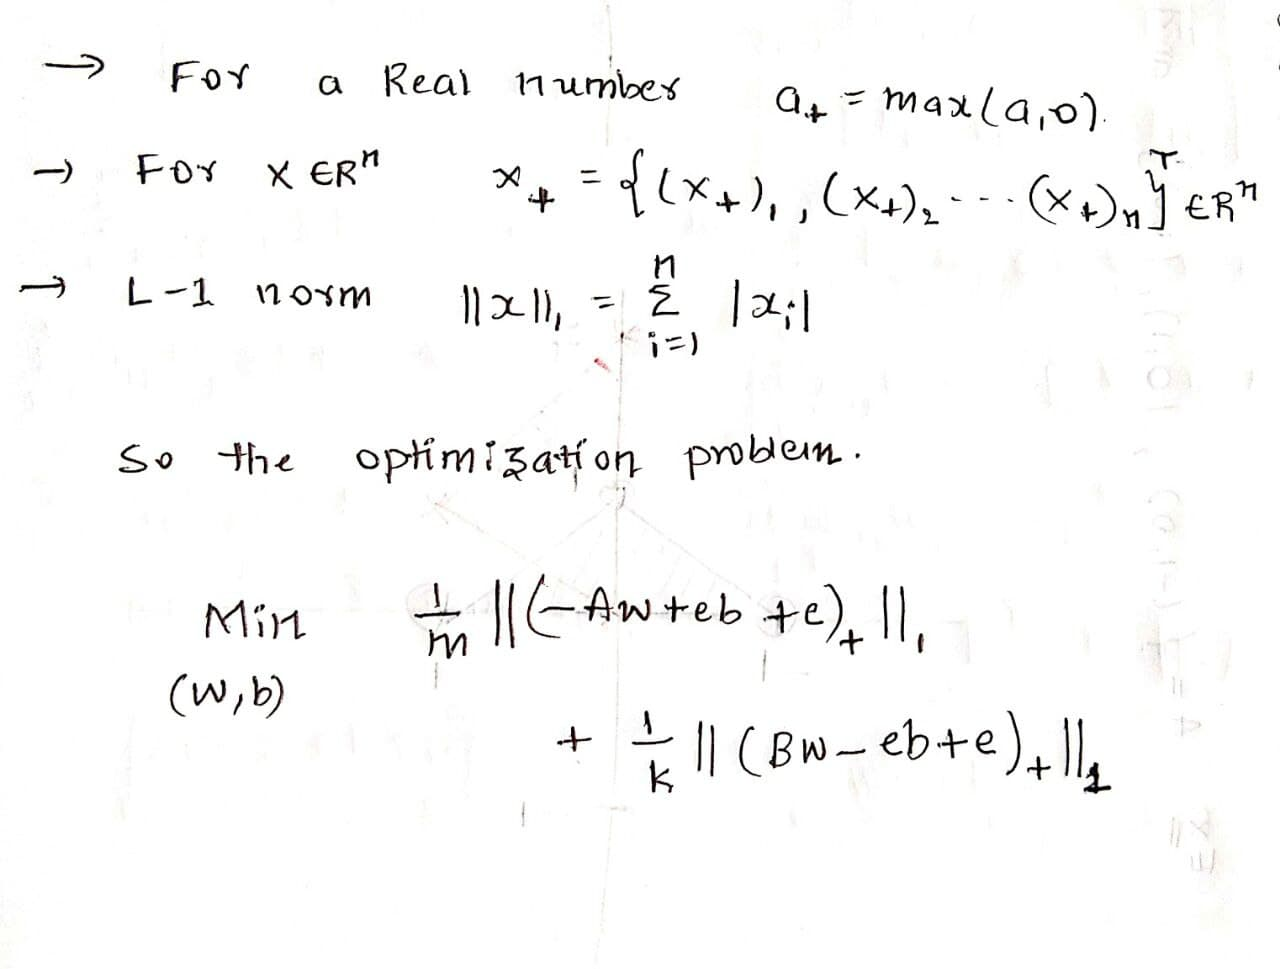 → For a Real number a₊ = max(a,0).
→ For x ∈ Rⁿ x₊ = {(x₊)₁, (x₊)₂ ---- (x₊)ₙ}ᵀ ∈ Rⁿ
→ L-1 norm ||x||₁ = Σ_{i=1}^{n} |xᵢ|
So the optimization problem.
Min 1/m ||(-Aw+eb+e)₊||₁
(w,b)
+ 1/k ||(Bw-eb+e)₊||₁